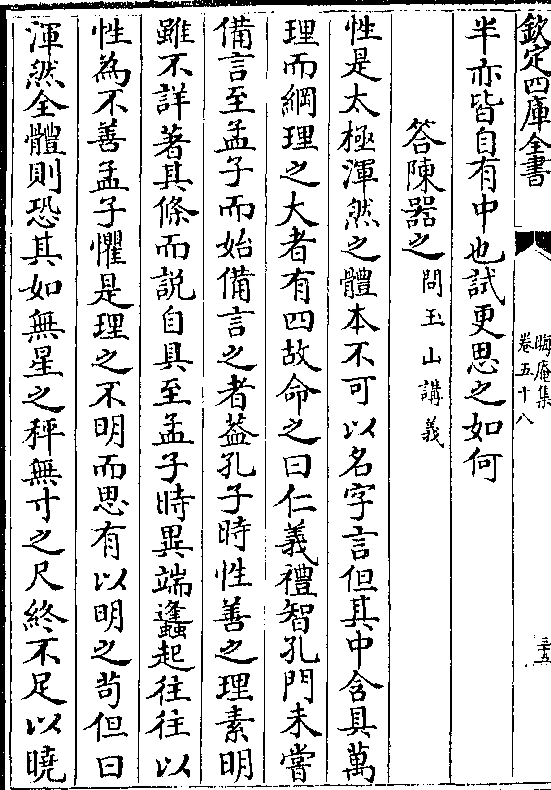 欽定四庫全書
晦庵集
卷五十八
三十五
半亦皆自有中也試更思之如何
答陳器之問玉山講義
性是太極渾然之體本不可以名字言但其中含具萬
理而綱理之大者有四故命之曰仁義禮智孔門未嘗
備言至孟子而始備言之者葢孔子時性善之理素明
雖不詳著其條而説自具至孟子時異端蠭起往往以
性為不善孟子懼是理之不明而思有以明之苟但曰
渾然全體則恐其如無星之秤無寸之尺終不足以曉